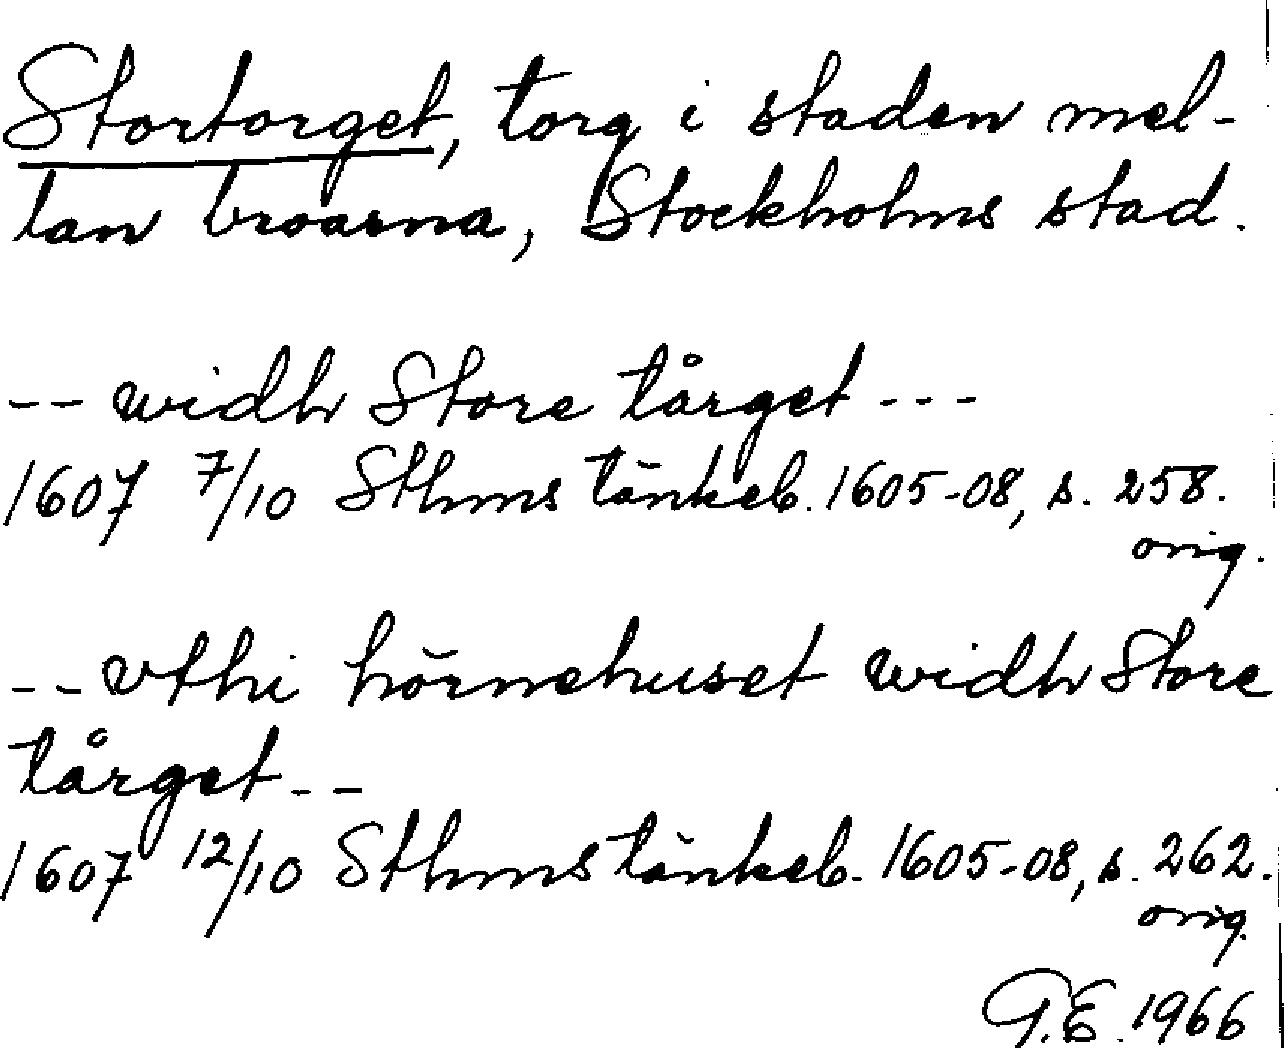 Stortorget, torg i staden mel-
lan broarna, Stockholms stad.
-- widh Store tårget ---
1607 7/10 Sthms tänkeb. 1605-08, s. 258.
orig.
-- vthi hörnehuset widh Store
tårget --
1607 12/10 Sthms tänkeb. 1605-08, s. 262.
orig.
G.E. 1966